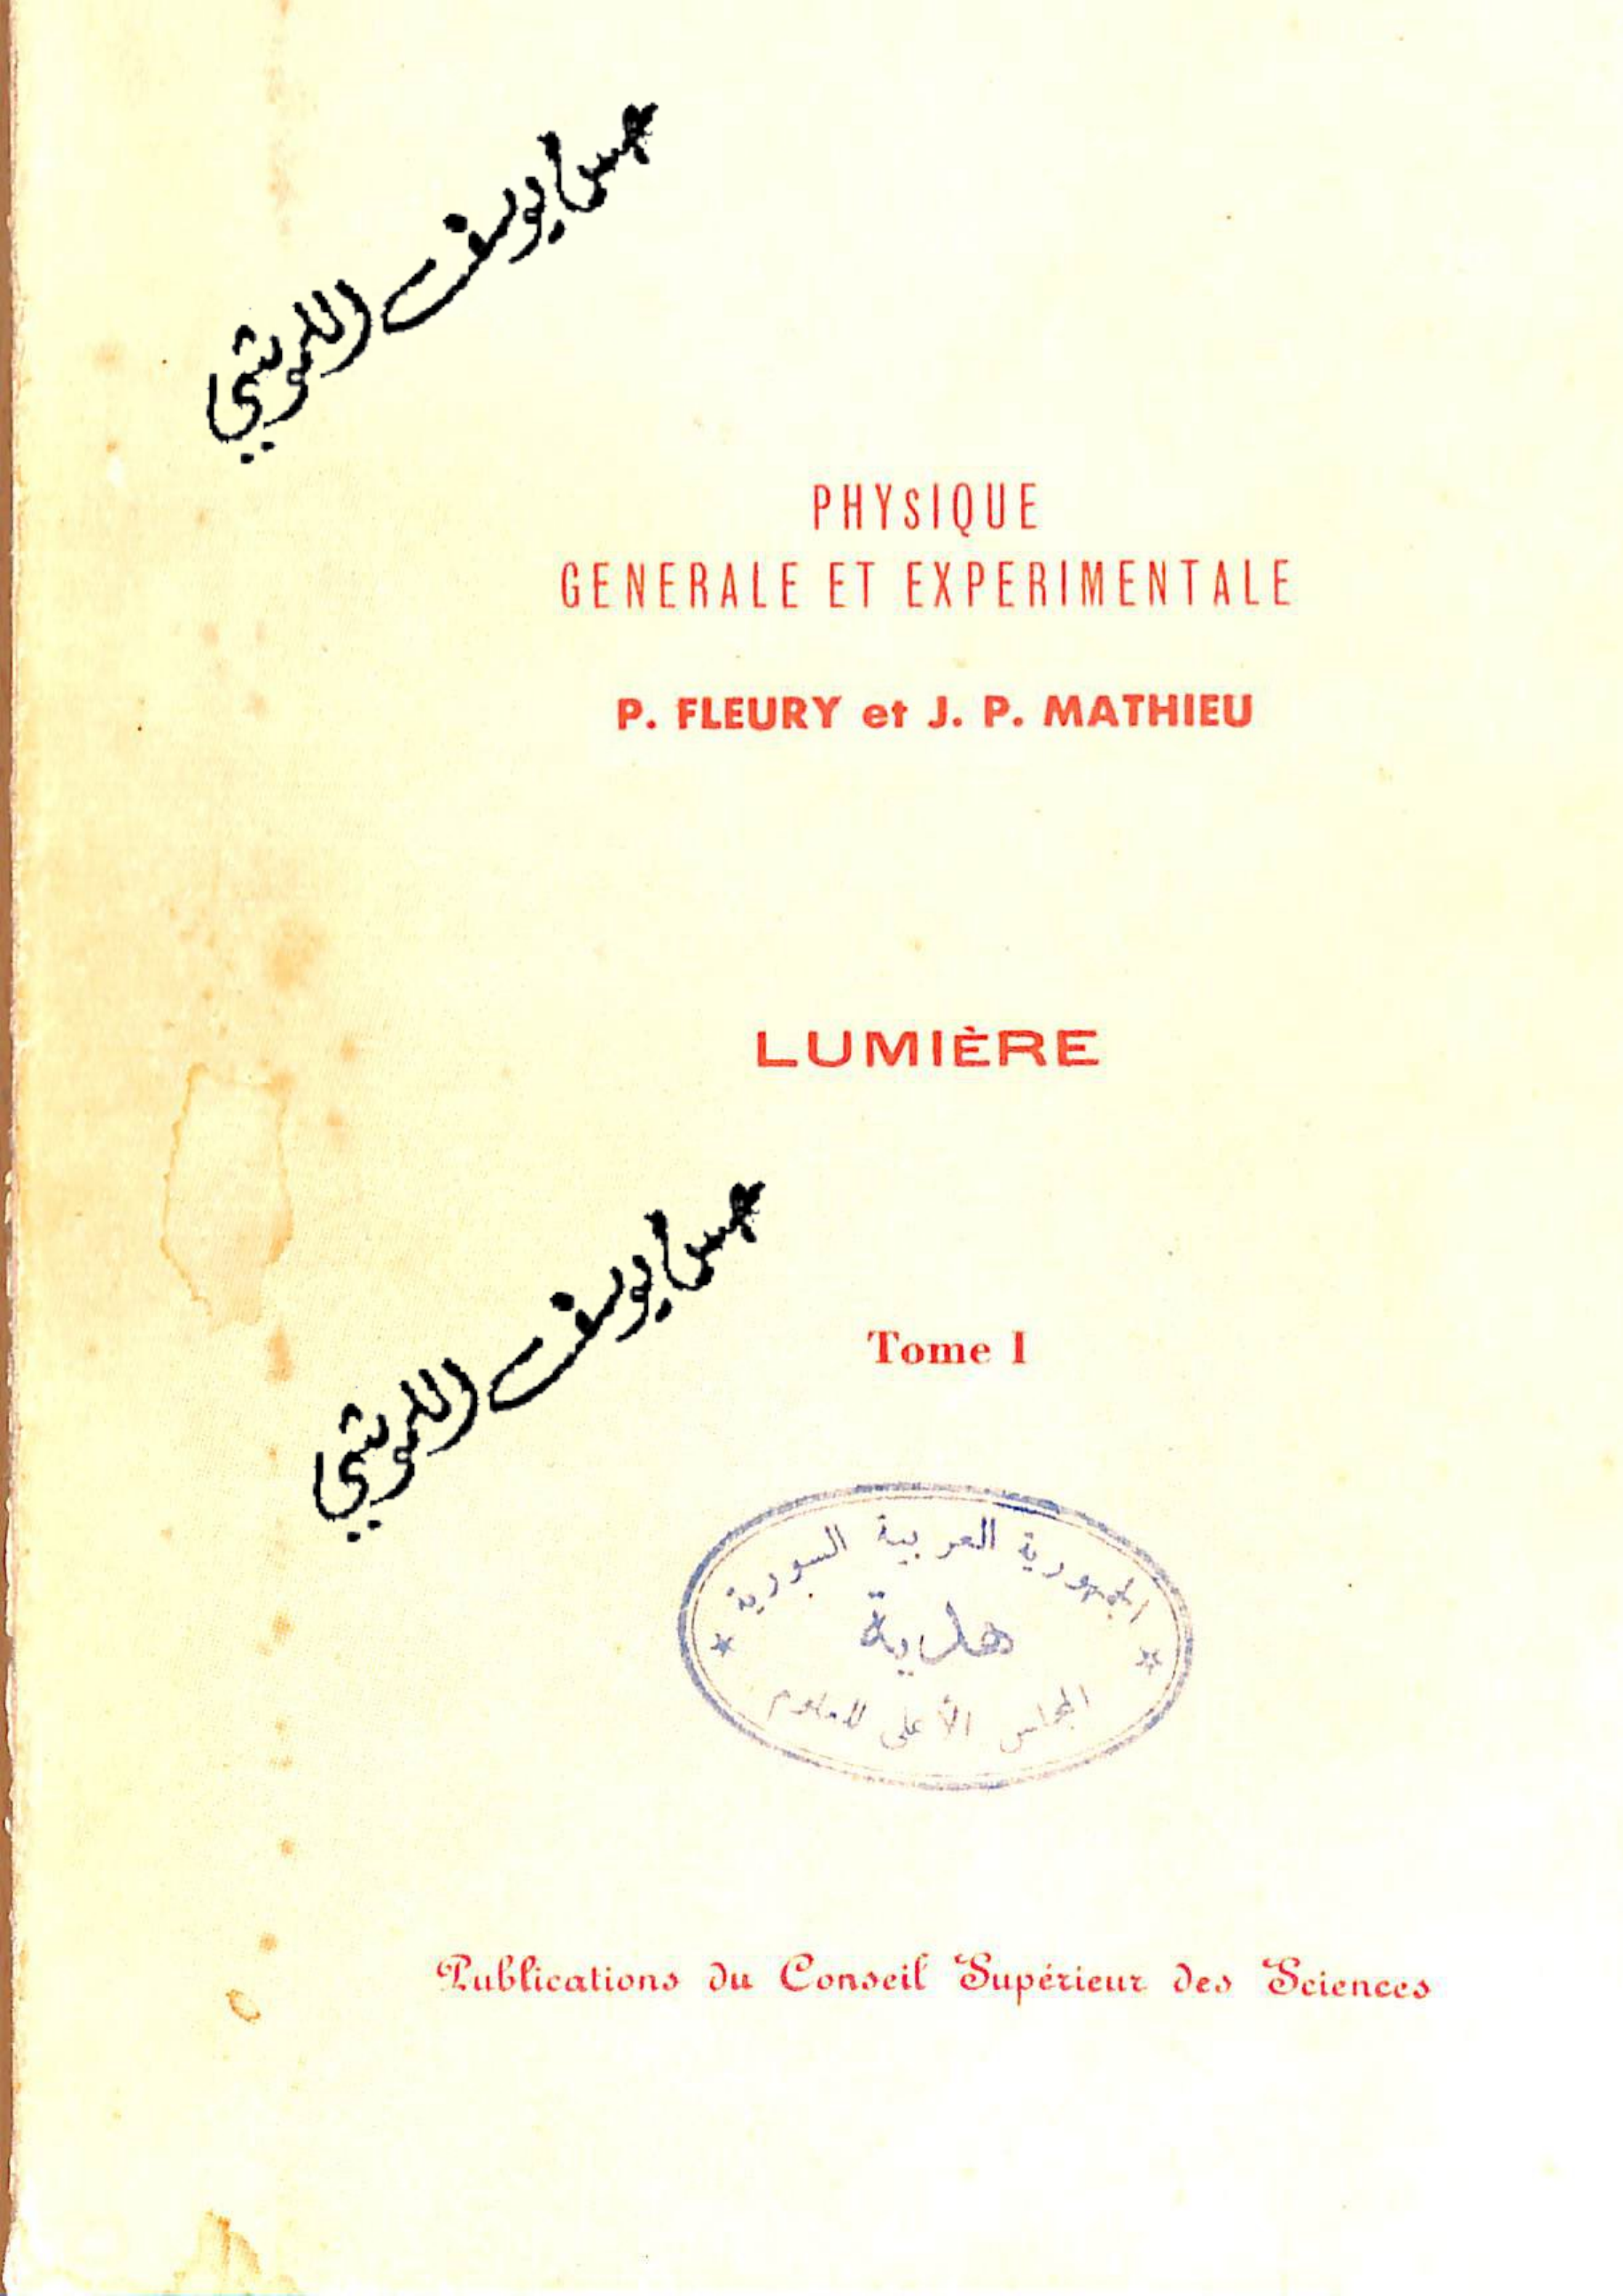 يوسف اللموشي
PHYSIQUE
GENERALE ET EXPERIMENTALE
P. FLEURY et J. P. MATHIEU
LUMIÈRE
يوسف اللموشي
Tome I
الجمهورية العربية السورية
هدية
المجلس الأعلى للعلوم
Publications du Conseil Supérieur des Sciences